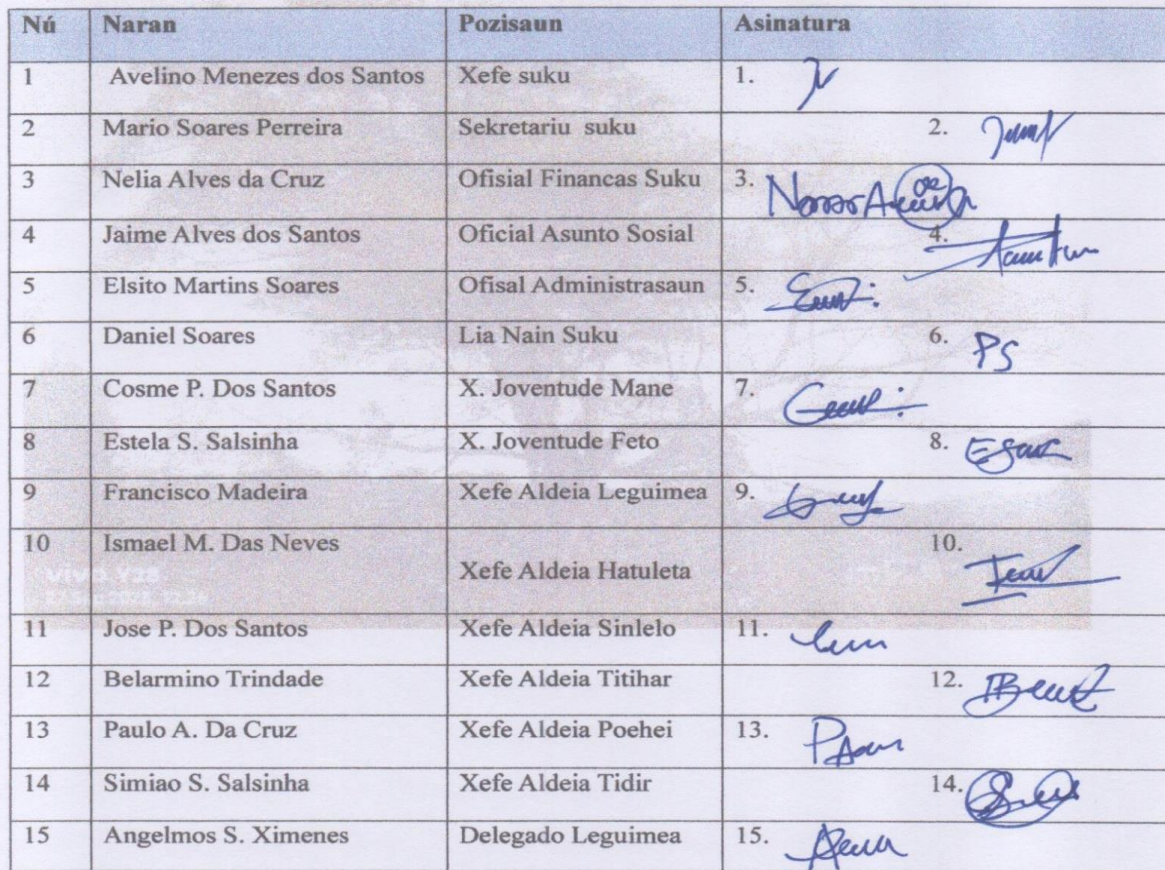 Nú Naran Pozisaun Asinatura
1 Avelino Menezes dos Santos Xefe suku 1.
2 Mario Soares Perreira Sekretariu suku 2.
3 Nelia Alves da Cruz Ofisial Financas Suku 3.
4 Jaime Alves dos Santos Oficial Asunto Sosial 4.
5 Elsito Martins Soares Ofisal Administrasaun 5.
6 Daniel Soares Lia Nain Suku 6. PS
7 Cosme P. Dos Santos X. Joventude Mane 7.
8 Estela S. Salsinha X. Joventude Feto 8.
9 Francisco Madeira Xefe Aldeia Leguimea 9.
10 Ismael M. Das Neves 10.
Xefe Aldeia Hatuleta
11 Jose P. Dos Santos Xefe Aldeia Sinlelo 11.
12 Belarmino Trindade Xefe Aldeia Titihar 12.
13 Paulo A. Da Cruz Xefe Aldeia Poehei 13.
14 Simiao S. Salsinha Xefe Aldeia Tidir 14.
15 Angelmos S. Ximenes Delegado Leguimea 15.